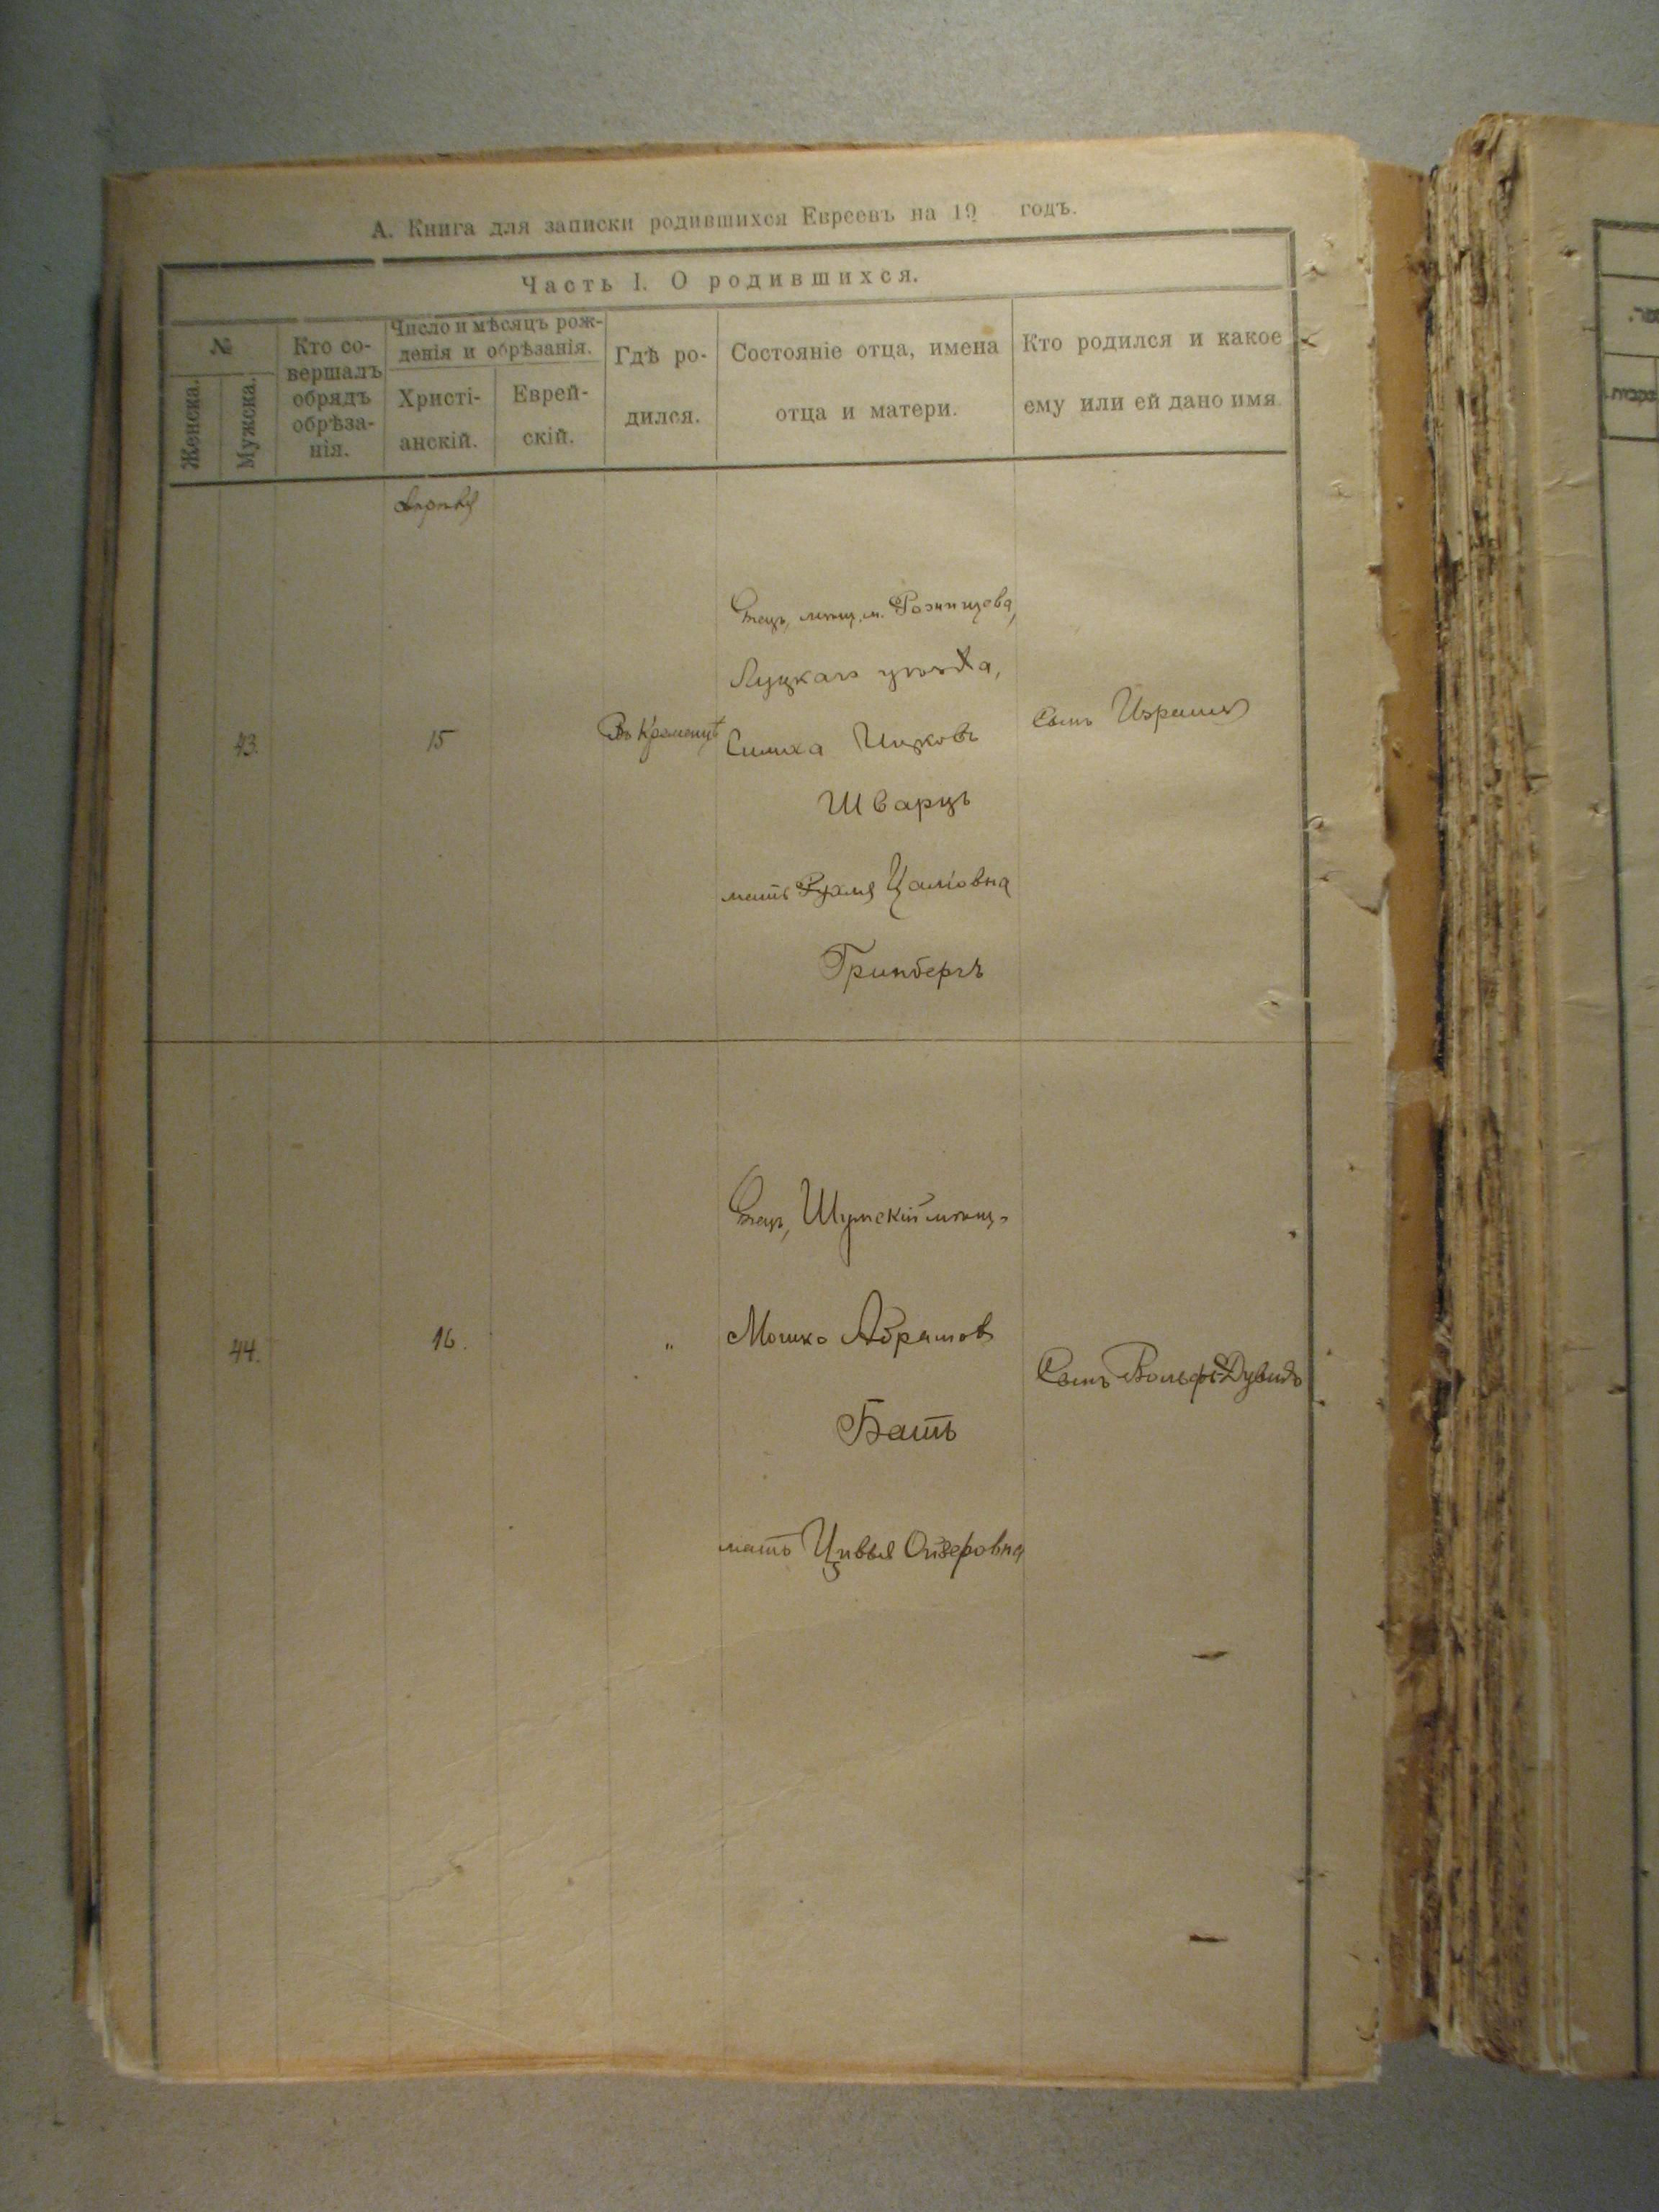 А. Книга для записки родившихся Евреевъ на 19 годъ.
Часть I. О родившихся.
№
Женска.
Мужска.
Кто со-
вершалъ
обрядъ
обрѣза-
нія.
Число и мѣсяцъ рож-
денія и обрѣзанія.
Христі-
анскій.
Еврей-
скій.
Гдѣ ро-
дился.
Состояніе отца, имена
отца и матери.
Кто родился и какое
ему или ей дано имя.
Апрѣля
43.
15
Въ Кременцѣ
Отецъ, мѣщ. м. Рожищева,
Луцкаго уѣзда,
Симха Ицковъ
Шварцъ
мать Рухля
Гринбергъ
Сынъ Израиль
44.
16.
"
Отецъ, Шумскій мѣщ.
Мошко Абрамов
Батъ
мать Цивья Ойзеровна
Сынъ Вольфъ-Дувидъ